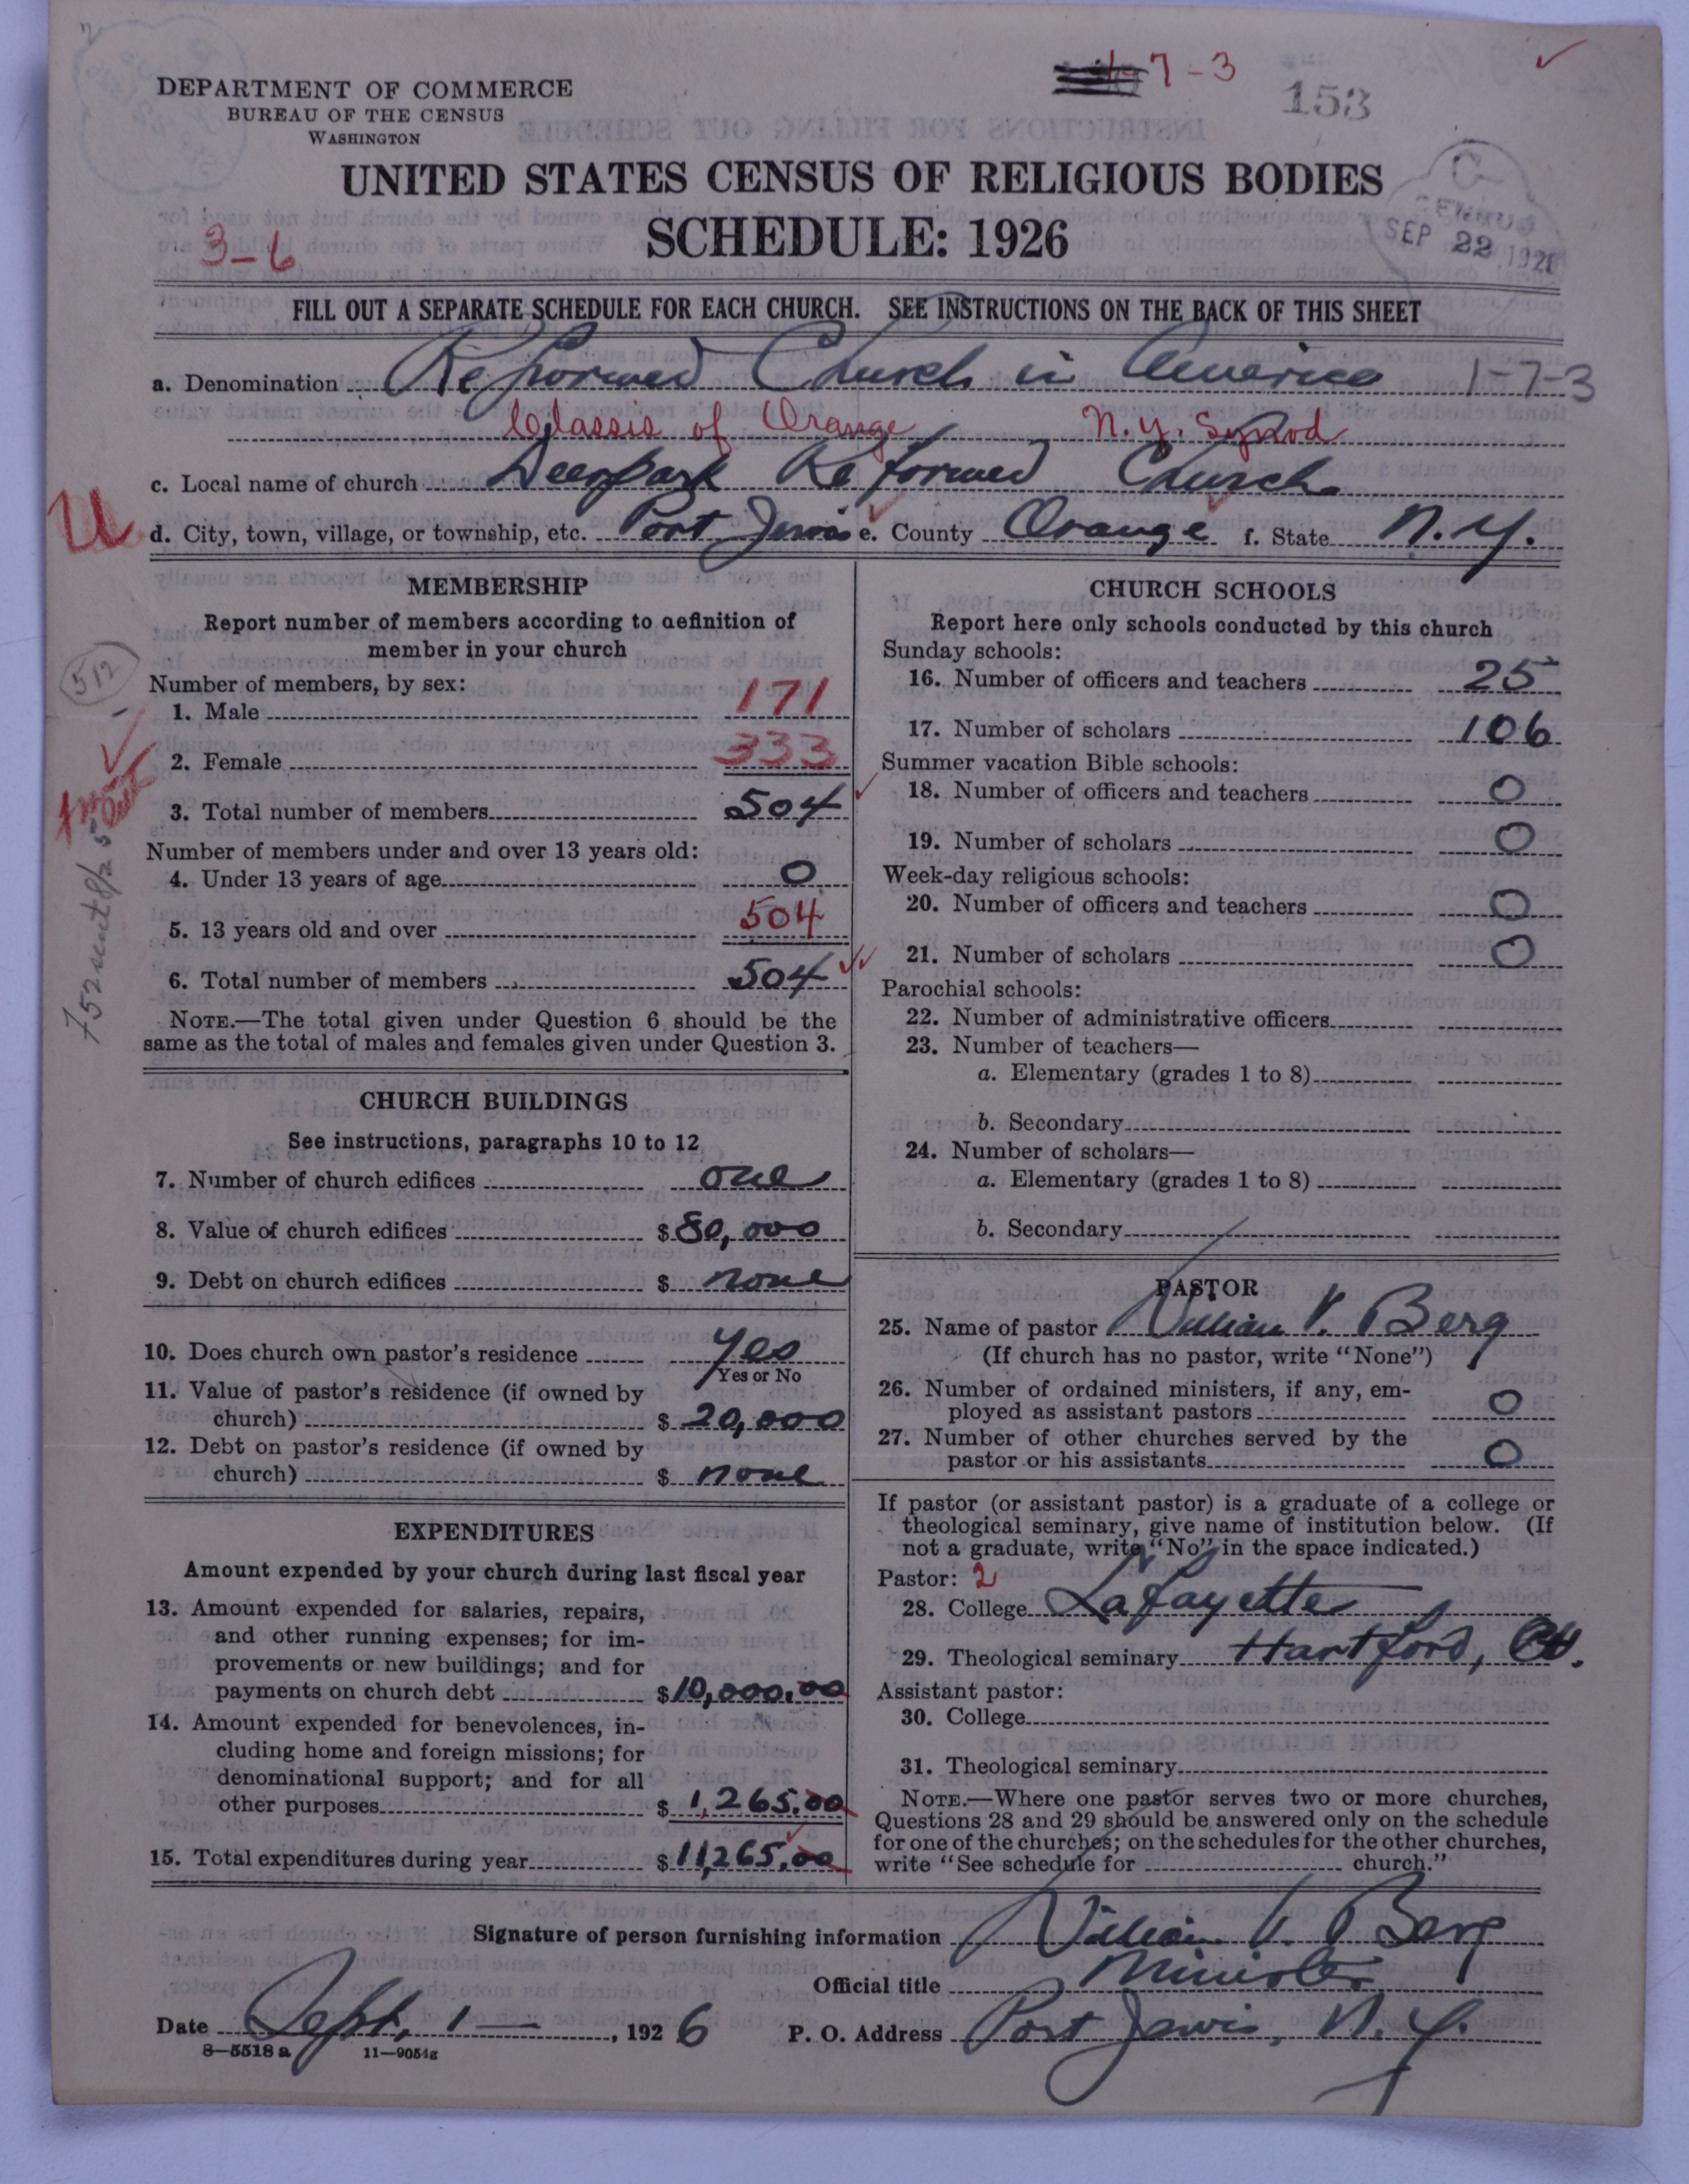 7-3
153
DEPARTMENT OF COMMERCE
BUREAU OF THE CENSUS
WASHINGTON
UNITED STATES CENSUS OF RELIGIOUS BODIES
SCHEDULE: 1926
3-6
CENSUS
SEP 22 192
FILL OUT A SEPARATE SCHEDULE FOR EACH CHURCH. SEE INSTRUCTIONS ON THE BACK OF THIS SHEET
a. Denomination Reformed Church in America 1-7-3
Classis of Orange N.Y. Synod
c. Local name of church Deerpark Reformed Church
U
d. City, town, village, or township, etc. Port Jervis e. County Orange f. State N.Y.
MEMBERSHIP
Report number of members according to definition of
member in your church
512
Number of members, by sex:
1. Male 171
2. Female 333
3. Total number of members 504
Number of members under and over 13 years old:
4. Under 13 years of age 0
5. 13 years old and over 504
6. Total number of members 504
NOTE.—The total given under Question 6 should be the
same as the total of males and females given under Question 3.
CHURCH BUILDINGS
See instructions, paragraphs 10 to 12
7. Number of church edifices one
8. Value of church edifices $80,000
9. Debt on church edifices $ none
10. Does church own pastor's residence Yes
Yes or No
11. Value of pastor's residence (if owned by
church) $20,000
12. Debt on pastor's residence (if owned by
church) $ none
EXPENDITURES
Amount expended by your church during last fiscal year
13. Amount expended for salaries, repairs,
and other running expenses; for im-
provements or new buildings; and for
payments on church debt $10,000.00
14. Amount expended for benevolences, in-
cluding home and foreign missions; for
denominational support; and for all
other purposes $1,265.00
15. Total expenditures during year $11,265.00
CHURCH SCHOOLS
Report here only schools conducted by this church
Sunday schools:
16. Number of officers and teachers 25
17. Number of scholars 106
Summer vacation Bible schools:
18. Number of officers and teachers 0
19. Number of scholars 0
Week-day religious schools:
20. Number of officers and teachers 0
21. Number of scholars 0
Parochial schools:
22. Number of administrative officers
23. Number of teachers—
a. Elementary (grades 1 to 8)
b. Secondary
24. Number of scholars—
a. Elementary (grades 1 to 8)
b. Secondary
PASTOR
25. Name of pastor William V. Berg
(If church has no pastor, write "None")
26. Number of ordained ministers, if any, em-
ployed as assistant pastors 0
27. Number of other churches served by the
pastor or his assistants 0
If pastor (or assistant pastor) is a graduate of a college or
theological seminary, give name of institution below. (If
not a graduate, write "No" in the space indicated.)
Pastor: 2
28. College Lafayette
29. Theological seminary Hartford, Ct.
Assistant pastor:
30. College
31. Theological seminary
NOTE.—Where one pastor serves two or more churches,
Questions 28 and 29 should be answered only on the schedule
for one of the churches; on the schedules for the other churches,
write "See schedule for church."
Signature of person furnishing information William V. Berg
Official title Minister
Date Sept. 1, 1926 P. O. Address Port Jervis, N.Y.
8—5518 a 11—9054g